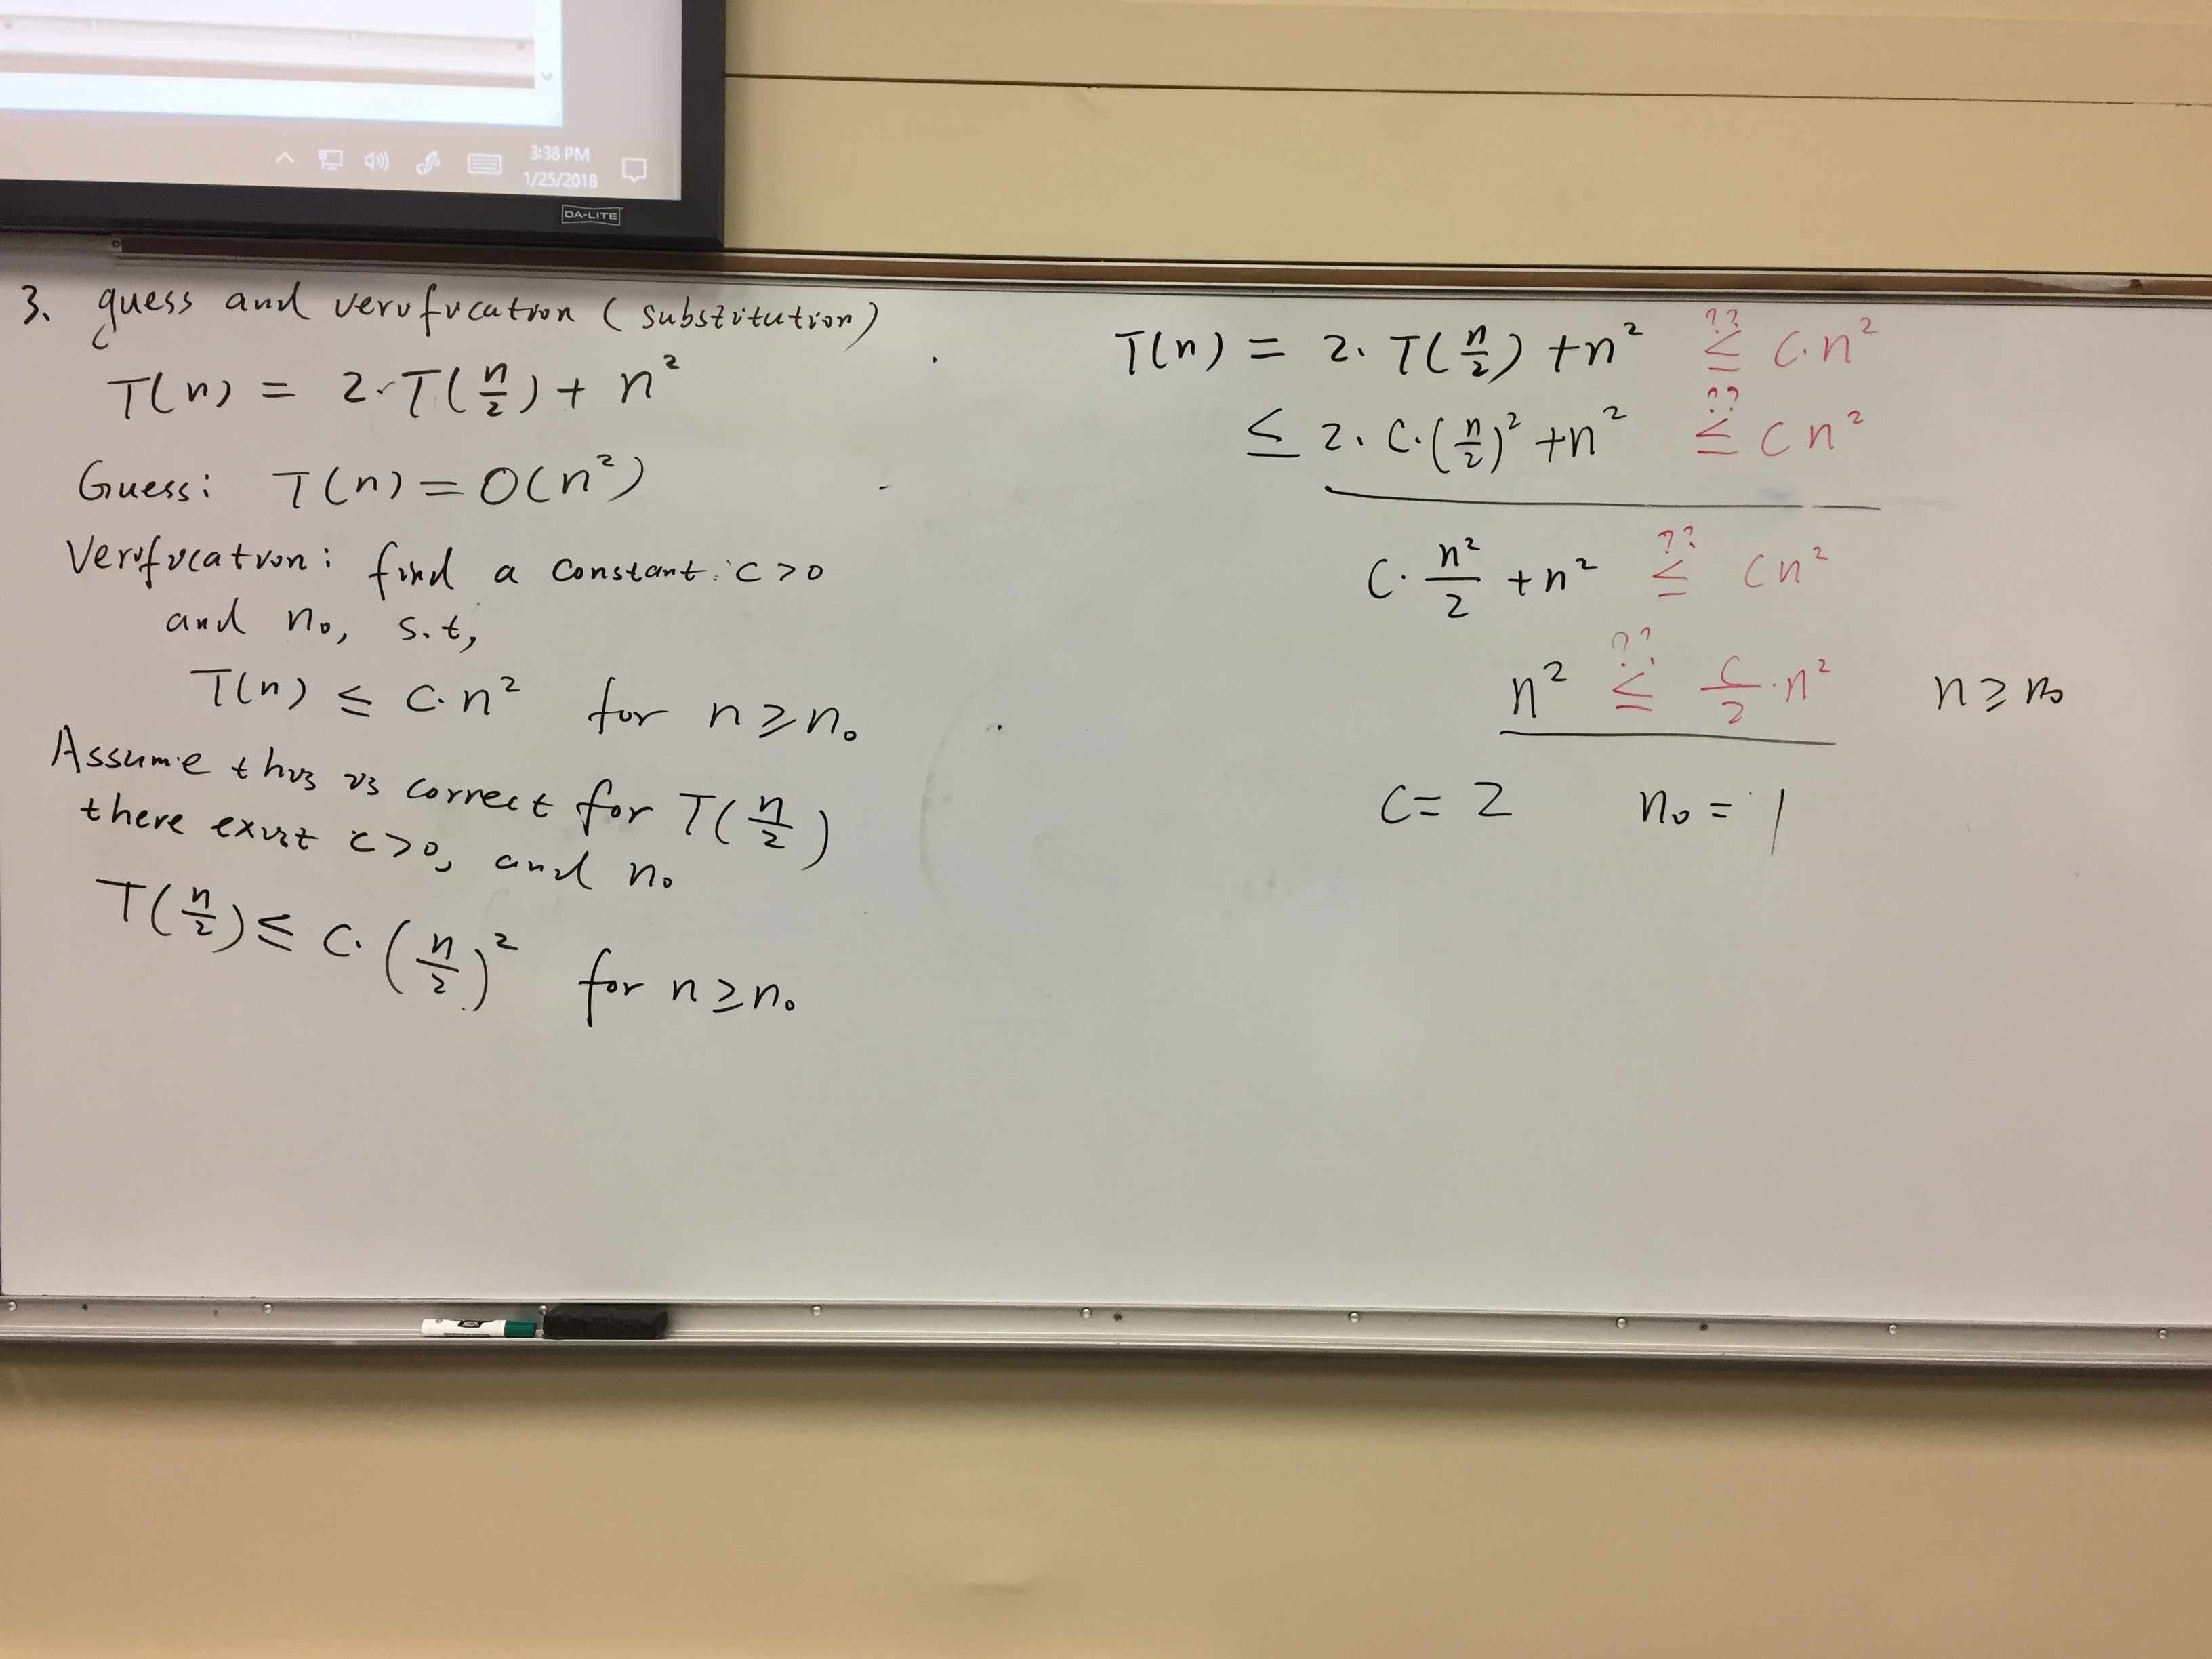 3:38 PM
1/25/2018
DA-LITE
3. guess and verification (substitution)
T(n) = 2·T(n/2) + n²
Guess: T(n) = O(n²)
Verification: find a constant c > 0
and n₀, s.t,
T(n) ≤ c·n² for n ≥ n₀
Assume this is correct for T(n/2)
there exist c > 0, and n₀
T(n/2) ≤ c·(n/2)² for n ≥ n₀
T(n) = 2·T(n/2) + n² ≤?? c·n²
≤ 2·c·(n/2)² + n² ≤?? cn²
c·n²/2 + n² ≤?? cn²
n² ≤?? c/2·n² n ≥ n₀
c = 2 n₀ = 1